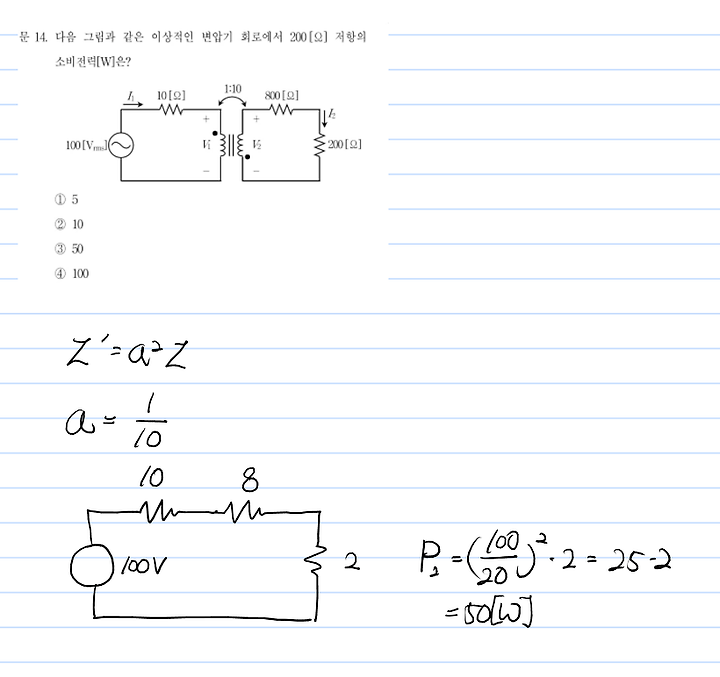 문 14. 다음 그림과 같은 이상적인 변압기 회로에서 200[Ω] 저항의
소비전력[W]은?
I₁ 10[Ω] 1:10 800[Ω] I₂
+ +
100[Vrms] V₁ V₂ 200[Ω]
− −
① 5
② 10
③ 50
④ 100
Z′=a²Z
a = 1/10
10 8
100V 2
P₂ = (100/20)²·2 = 25·2
= 50[W]